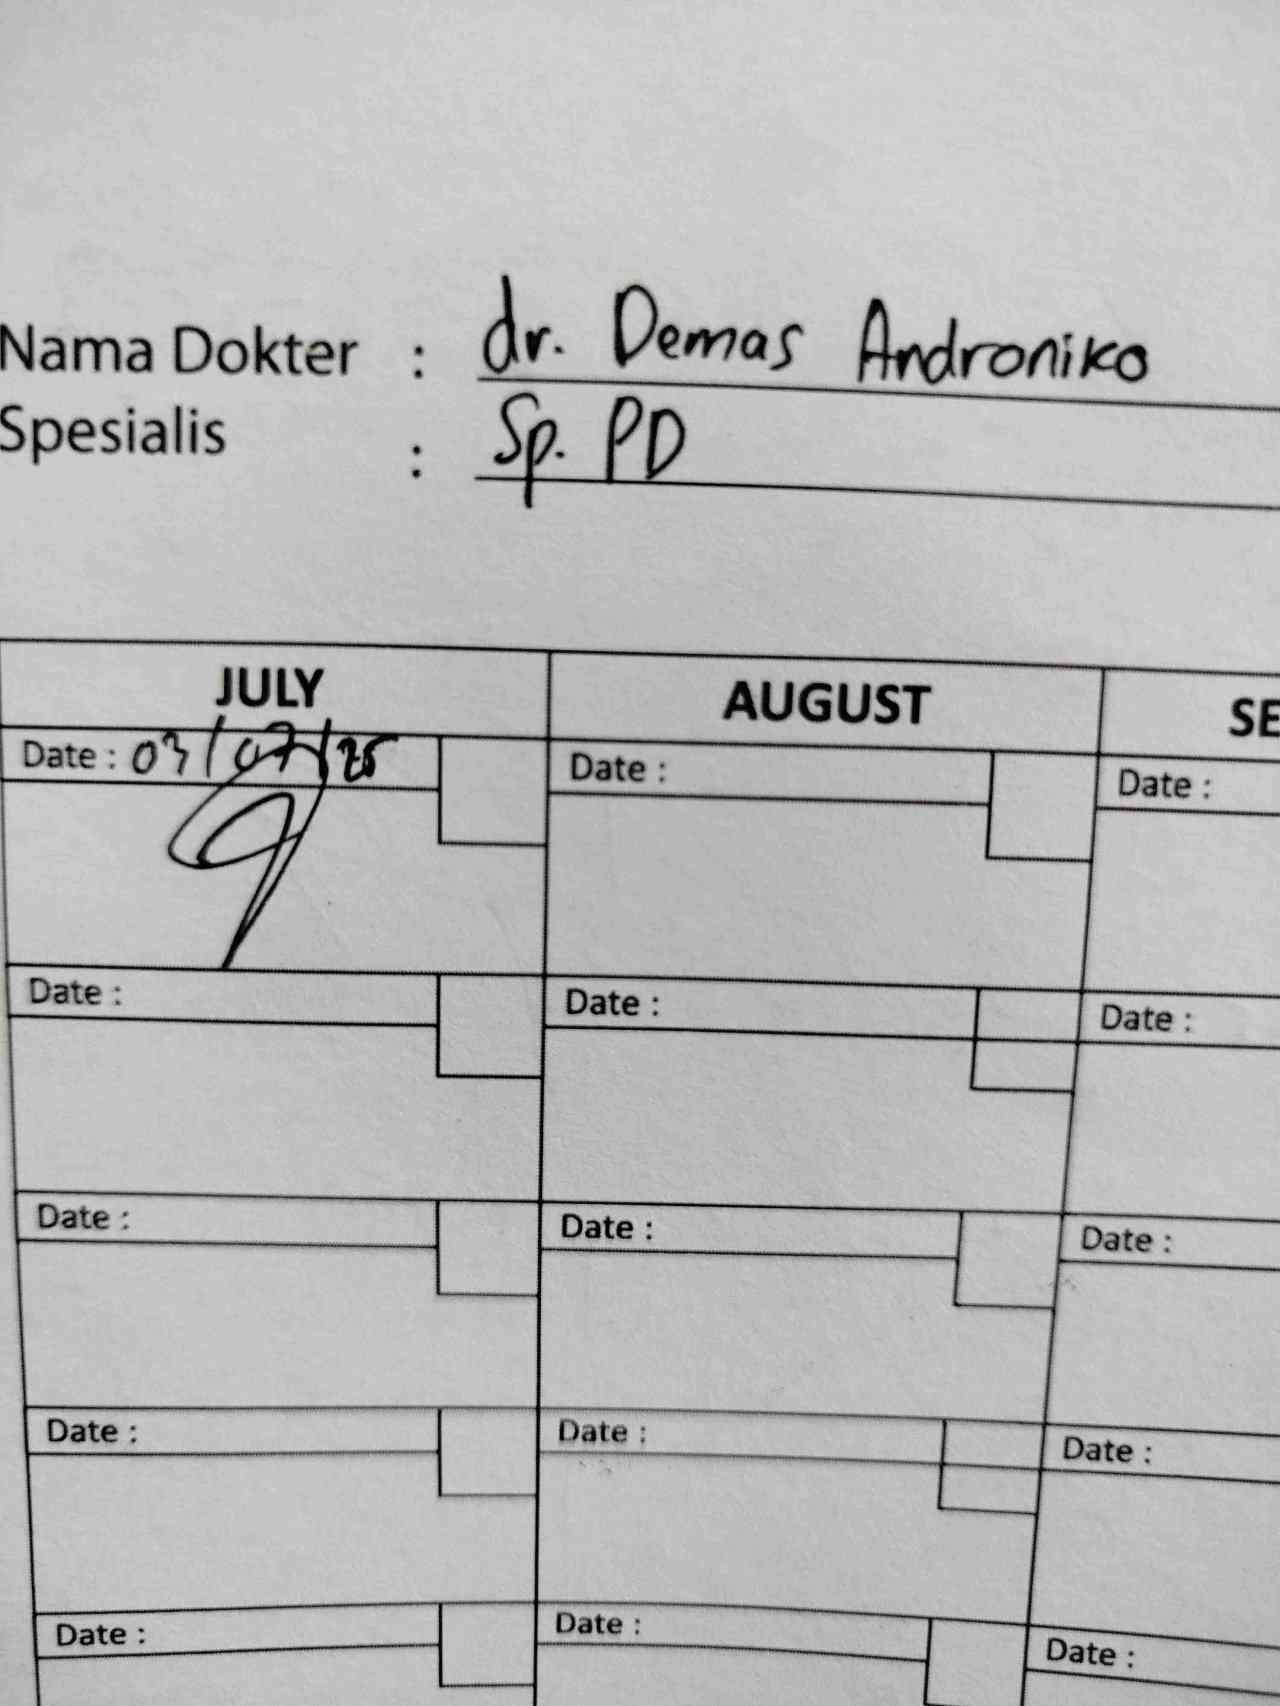 Nama Dokter : dr. Demas Androniko
Spesialis : Sp. PD
JULY AUGUST SE
Date : 03/07/25 Date : Date :
Date : Date : Date :
Date : Date : Date :
Date : Date : Date :
Date : Date : Date :